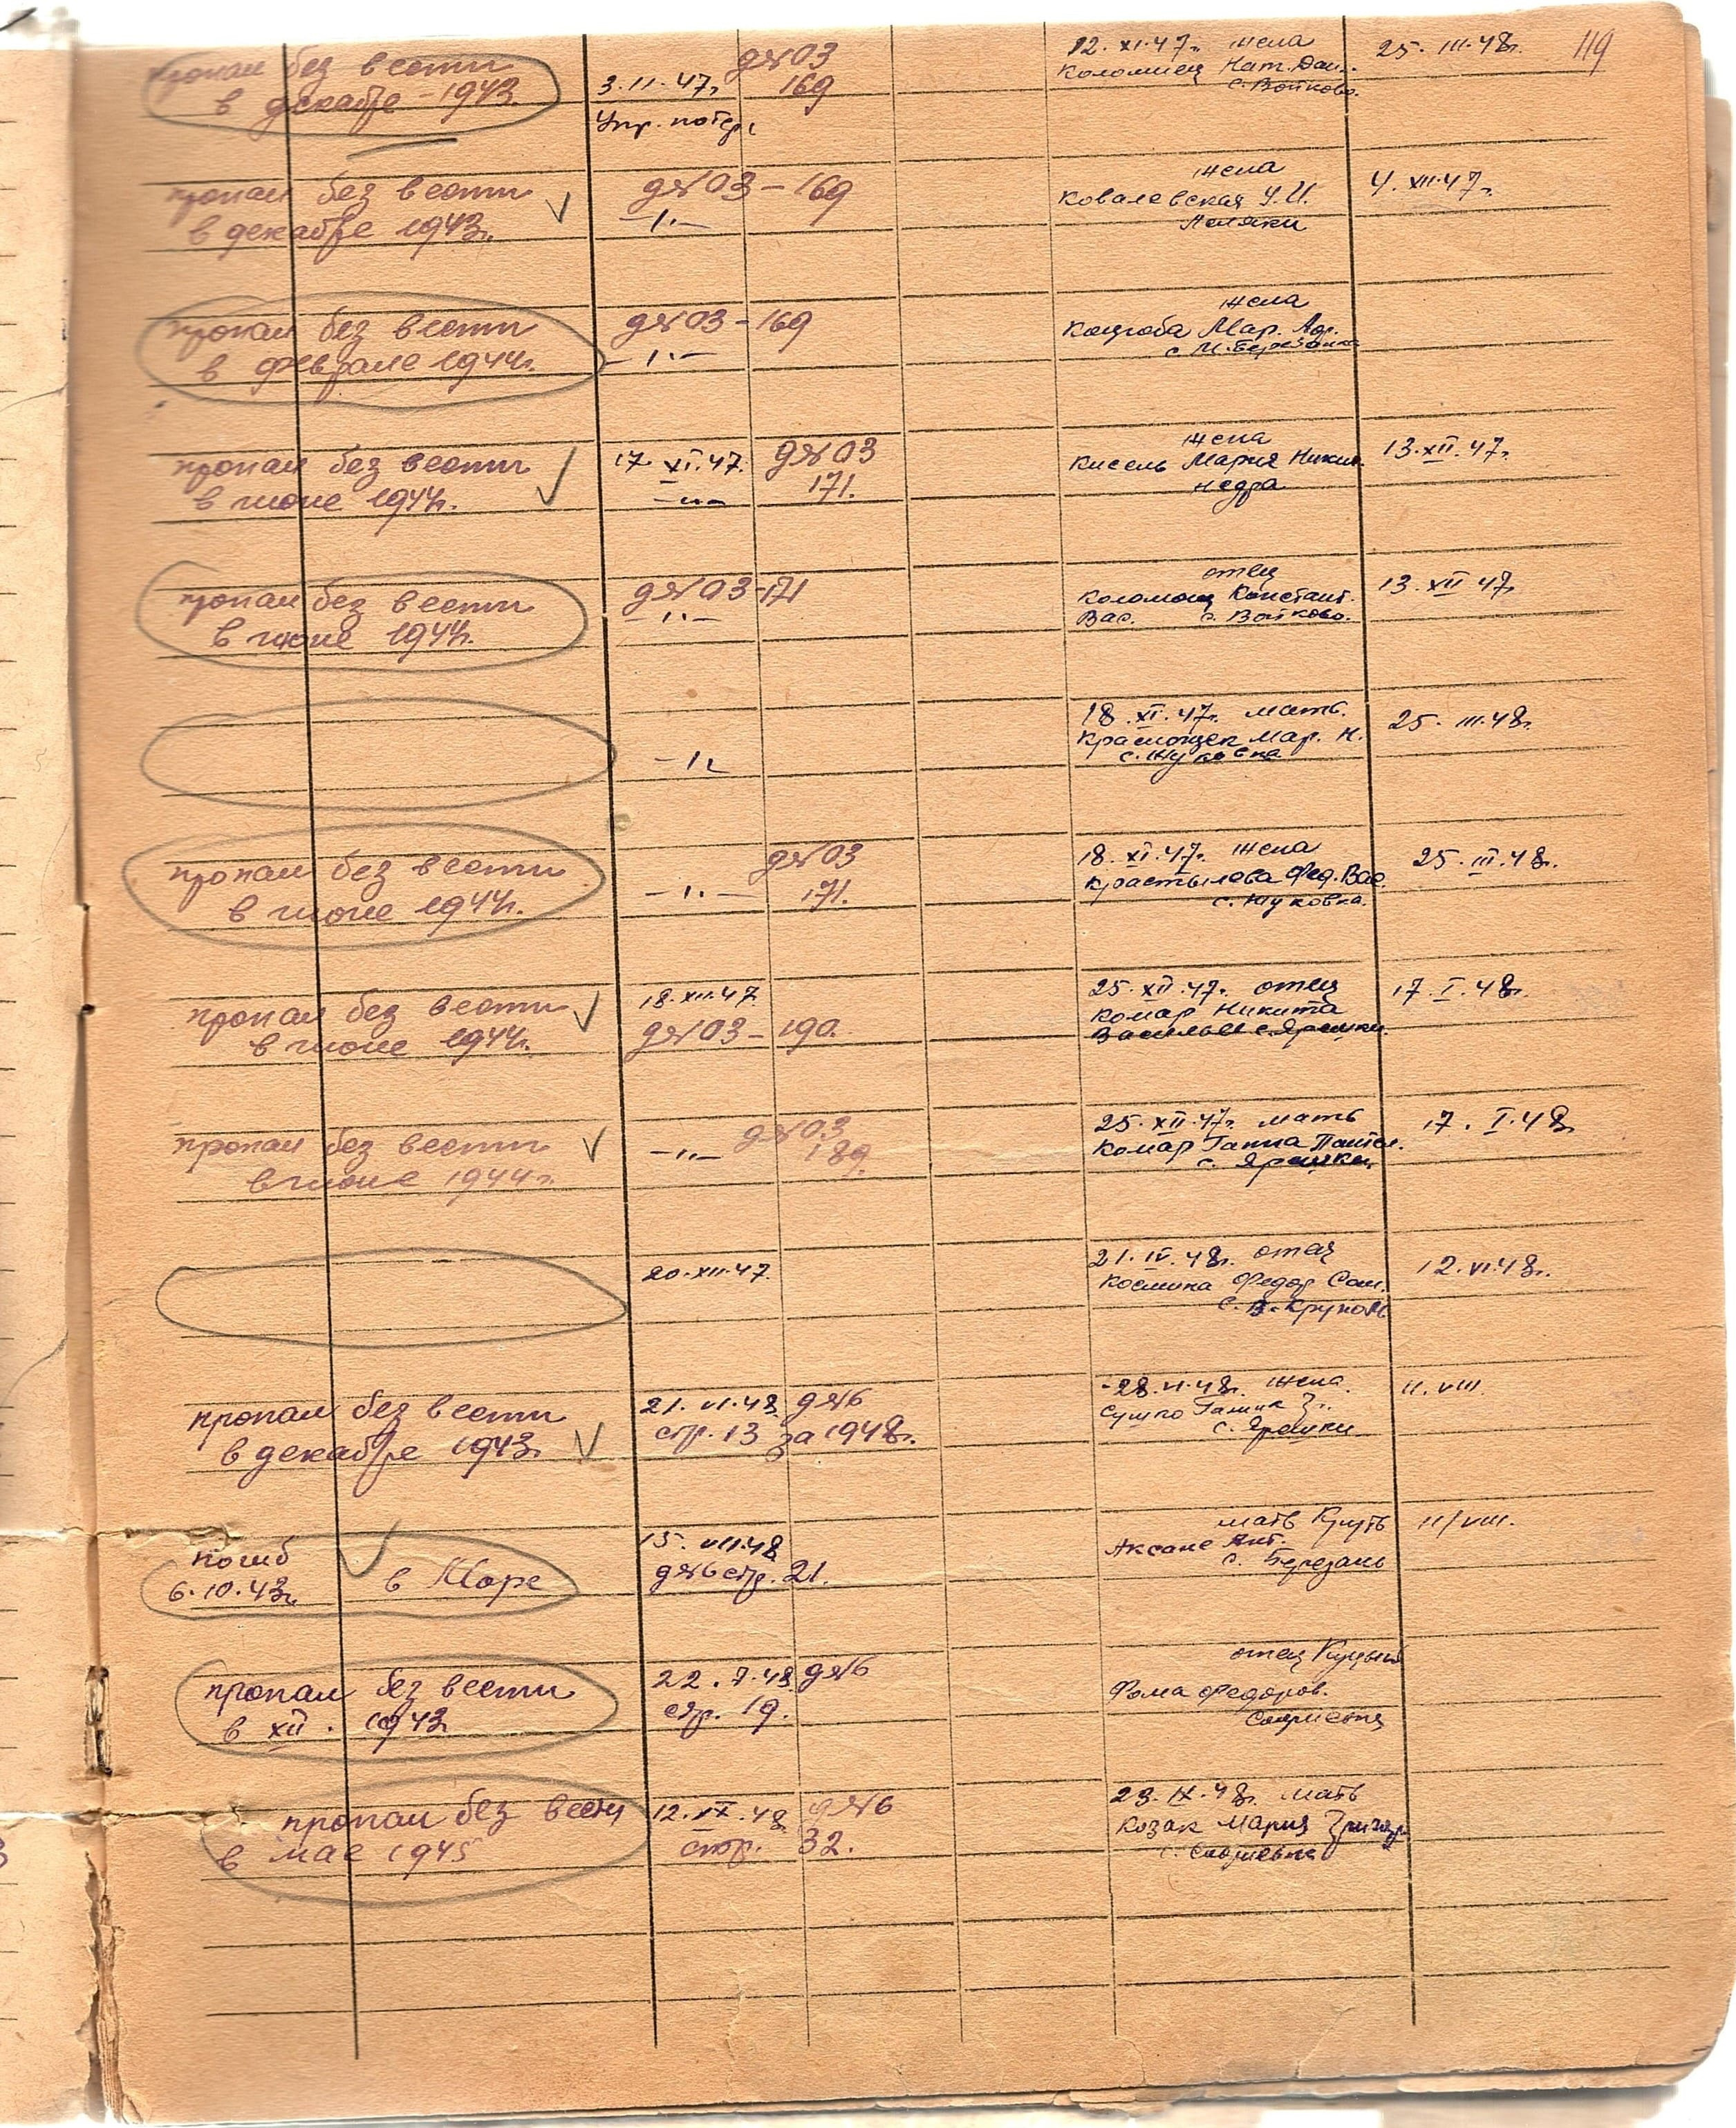 119
пропал без вести
в декабре - 1943
3.11.47г.
Упр. потерь
д№03
169
12.XI.47г. жена
Коломиец Нат. Дан.
с. Войково.
25.III.48г.
пропал без вести
в декабре 1943г.
д№03 - 169
-"-
жена
Ковалевская У.И.
Леляки
4.XII.47г.
пропал без вести
в феврале 1944г.
д№03 - 169
-"-
жена
Мар.
с. М. Березанка
пропал без вести
в июне 1944г.
17.XI.47.
-"-
д№03
171.
жена
Кисель Мария Никит.
Недра
13.XII.47г.
пропал без вести
в июне 1944г.
д№03-171
-"-
отец
Коломиец Констант.
Вас. с. Войково.
13.XII 47г.
-"-
18.XI.47г. мать.
Мар. Н.
с. Жуковка
25.III.48г.
пропал без вести
в июне 1944г.
-"-
д№03
171.
18.XI.47г. жена
Крастылева Фед. Вас.
с. Жуковка.
25.III.48г.
пропал без вести
в июне 1944г.
18.XII.47
д№03 - 190.
25.XII.47г. отец
Комар Никита
Васильев с. Ярешки.
17.I.48г.
пропал без вести
в июне 1944г.
-"-
д№03
189.
25.XII.47г. мать
Комар Ганна Пантел.
с. Ярешки
17.I.48г.
20.XII.47.
21.IV.48г. отец
Космина Федор Сам.
с. В-Круполь
12.VI.48г.
пропал без вести
в декабре 1943г.
21.VI.48. д№6
стр. 13 за 1948г.
28.VI.48г. жена.
Сушко
с. Ярешки
11.VIII.
погиб
6.10.43г. в Море
15.VII.48
д№6 стр. 21.
мать Круть
Аксане Ант.
с. Березань
11/VIII.
пропал без вести
в XII. 1943
22.7.48. д№6
стр. 19.
отец
Фома Федоров.
пропал без вести
в мае 1945
12.IX.48 д№6
стр. 32.
23.IX.48г. мать
Козак Мария Григор.